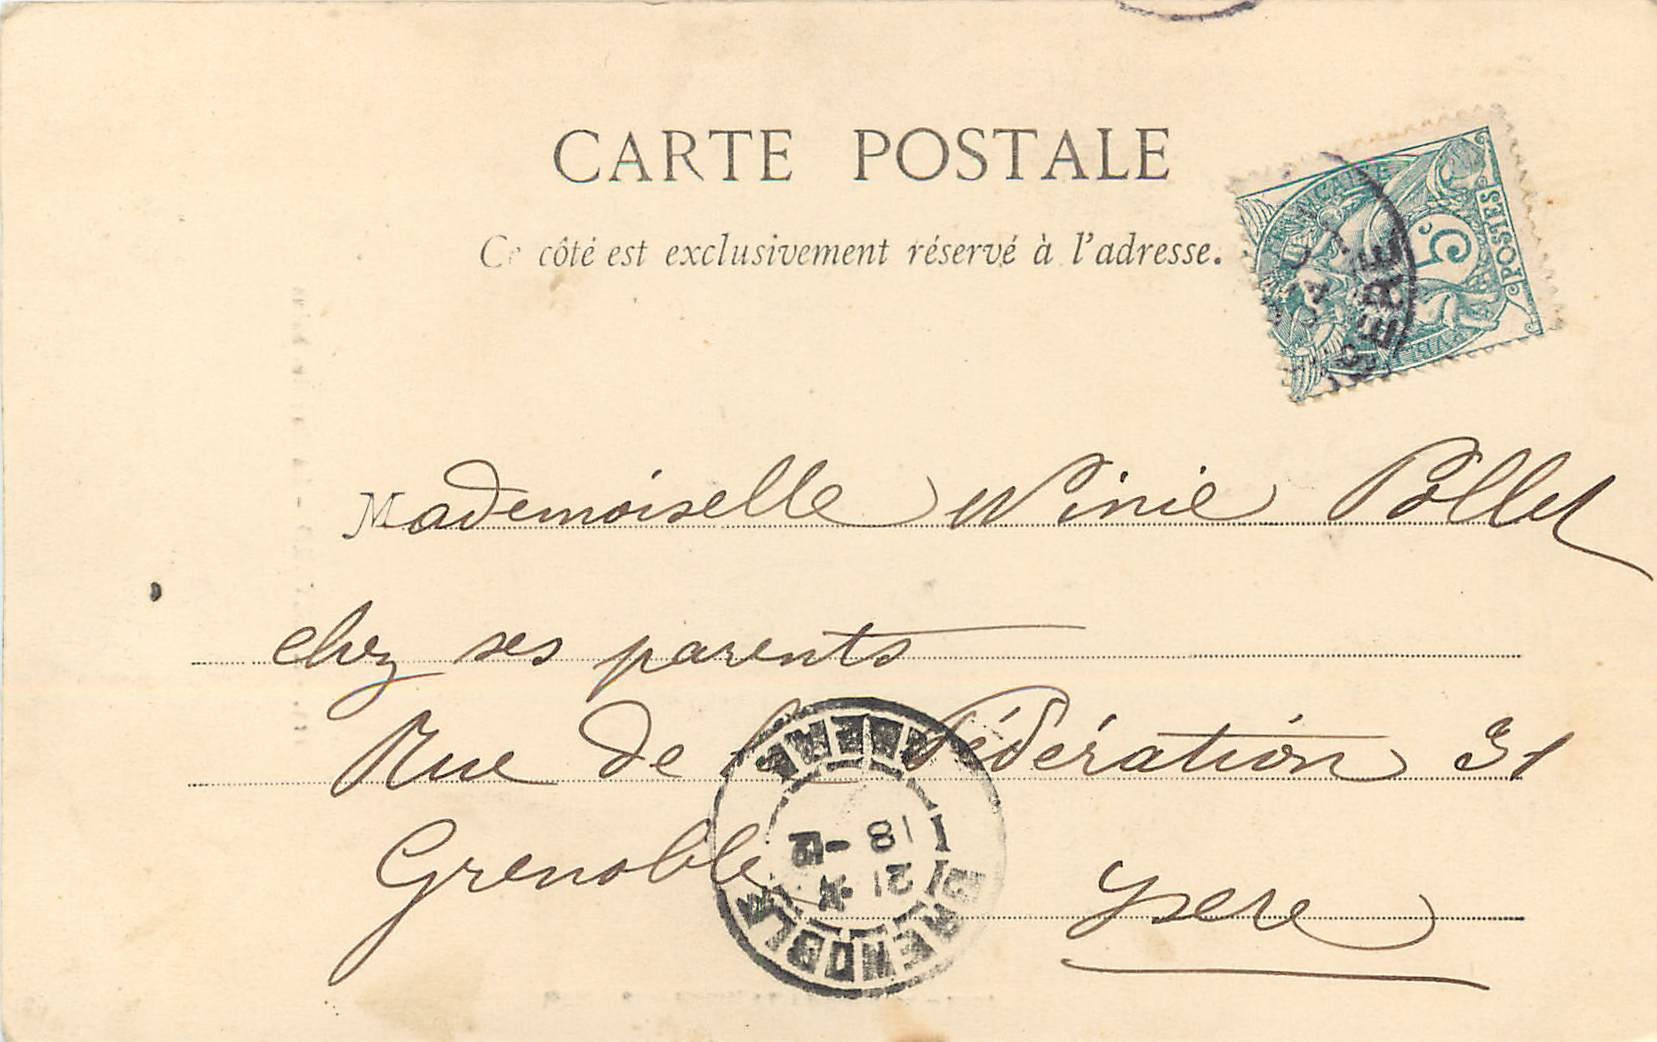 CARTE POSTALE
Ce côté est exclusivement réservé à l'adresse.
5
POSTES
ISERE
Mademoiselle Ninie Pollet
chez ses parents
Rue de la Fédération 31
Grenoble Ysere
GRENOBLE
ISERE
18 -12
21